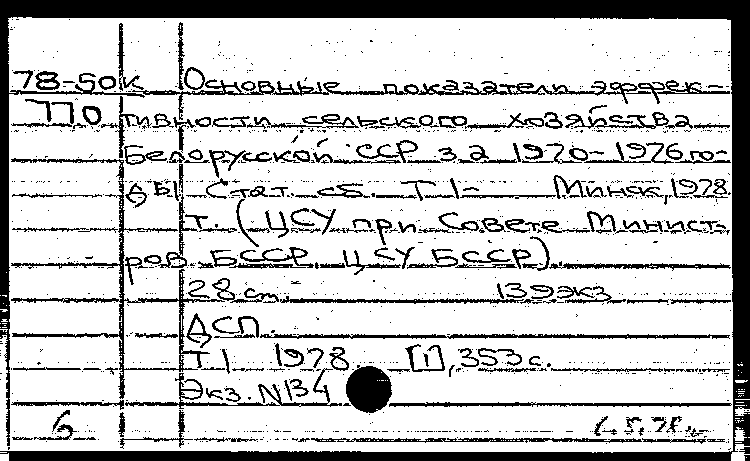 78-50к Основные показатели эффек-
770 тивности сельского хозяйства
Белорусской ССР за 1970-1976 го-
ды Стат. сб. Т 1- Минск, 1978
т. (ЦСУ при Совете Минист-
ров БССР. ЦСУ БССР).
28 cm. 139экз
ДСП.
Т. 1 1978. [1], 353 с.
Экз. N134
6